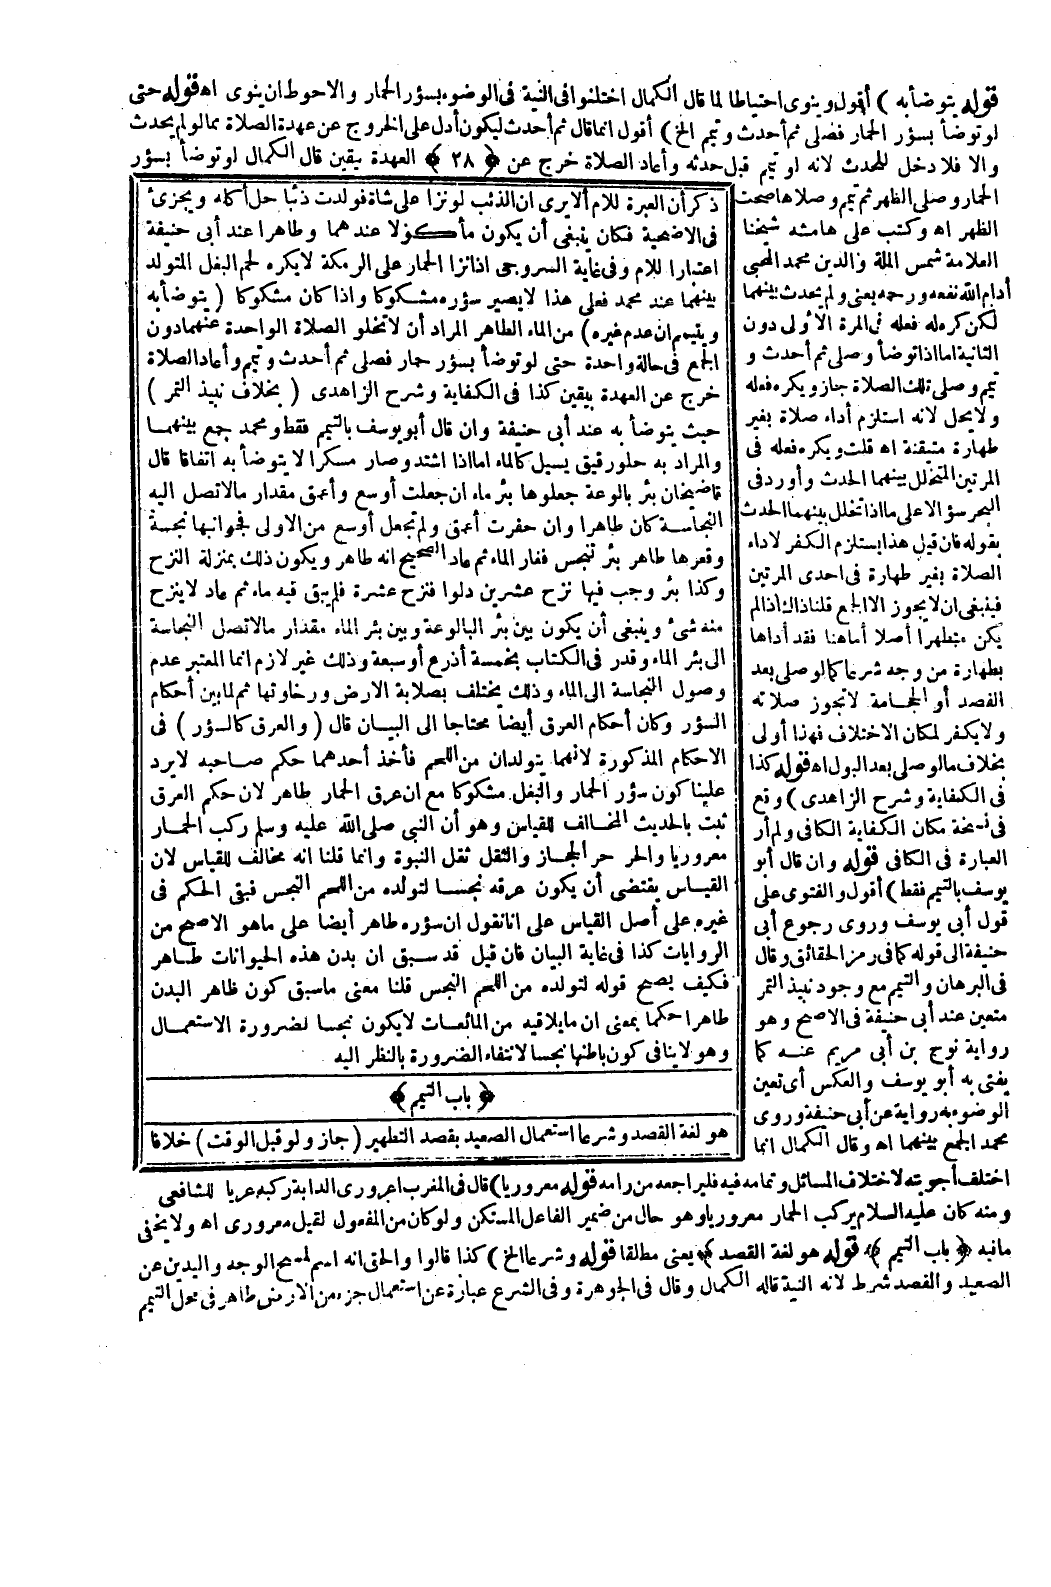 قوله يتوضأ به ) أقول وينوى احتياطا لما قال الكمال اختلفوا فى النية فى الوضوء بسؤر الحمار والاحوط ان ينوى اه قوله حتى
لو توضأ بسؤر الحمار فصلى ثم أحدث وتيمم الخ ) أقول انما قال ثم أحدث ليكون أدل على الخروج عن عهدة الصلاة مما لو لم يحدث
والا فلا دخل للحدث لانه لو تيمم قبل حدثه وأعاد الصلاة خرج عن ﴿ ٢٨ ﴾ العهدة بيقين قال الكمال لو توضأ بسؤر
الحمار وصلى الظهر ثم تيمم وصلاها صحت
الظهر اه وكتب على هامشه شيخنا
العلامة شمس الملة والدين محمد المحبى
أدام الله نفعه ورحمه يعنى ولم يحدث بينهما
لكن كره له فعله فى المرة الأولى دون
الثانية اما اذا توضأ وصلى ثم أحدث و
تيمم وصلى تلك الصلاة جاز ويكره فعله
ولا يحل لانه استلزم أداء صلاة بغير
طهارة متيقنة اه قلت ويكره فعله فى
المرتين المتخلل بينهما الحدث وأورد فى
البحر سؤالا على ما اذا تخلل بينهما الحدث
بقوله فان قيل هذا يستلزم الكفر لاداء
الصلاة بغير طهارة فى احدى المرتين
فينبغى ان لا يجوز الا الجمع قلنا ذاك اذا لم
يكن متطهرا أصلا أما هنا فقد أداها
بطهارة من وجه شرعا كما لو صلى بعد
الفصد أو الحجامة لا تجوز صلاته
ولا يكفر لمكان الاختلاف فهذا أولى
بخلاف ما لو صلى بعد البول اه قوله كذا
فى الكفاية وشرح الزاهدى ) وقع
فى نسخة مكان الكفاية الكافى ولم أر
العبارة فى الكافى قوله وان قال أبو
يوسف بالتيمم فقط ) أقول والفتوى على
قول أبى يوسف وروى رجوع أبى
حنيفة الى قوله كما فى رمز الحقائق وقال
فى البرهان والتيمم مع وجود نبيذ التمر
متعين عند أبى حنيفة فى الاصح وهو
رواية نوح بن أبى مريم عنه كما
يفتى به أبو يوسف والعكس أى تعين
الوضوء به رواية عن أبى حنيفة وروى
محمد الجمع بينهما اه وقال الكمال انما
ذكر أن العبرة للام ألا يرى ان الذئب لو نزا على شاة فولدت ذئبا حل أكله ويجزئ
فى الاضحية فكان ينبغى أن يكون مأكولا عندهما وطاهرا عند أبى حنيفة
اعتبارا للام وفى غاية السروجى اذا نزا الحمار على الرمكة لا يكره لحم البغل المتولد
بينهما عند محمد فعلى هذا لا يصير سؤره مشكوكا واذا كان مشكوكا ( يتوضأ به
ويتيمم ان عدم غيره ) من الماء الطاهر المراد أن لا تخلو الصلاة الواحدة عنهما دون
الجمع فى حالة واحدة حتى لو توضأ بسؤر حمار فصلى ثم أحدث وتيمم وأعاد الصلاة
خرج عن العهدة بيقين كذا فى الكفاية وشرح الزاهدى ( بخلاف نبيذ التمر )
حيث يتوضأ به عند أبى حنيفة وان قال أبو يوسف بالتيمم فقط ومحمد جمع بينهما
والمراد به حلو رقيق يسيل كالماء اما اذا اشتد وصار مسكرا لا يتوضأ به اتفاقا قال
قاضيخان بئر بالوعة جعلوها بئر ماء ان جعلت أوسع وأعمق مقدار ما لا تصل اليه
النجاسة كان طاهرا وان حفرت أعمق ولم تجعل أوسع من الاولى فجوانبها نجسة
وقعرها طاهر بئر تنجس فغار الماء ثم عاد الصحيح انه طاهر ويكون ذلك بمنزلة النزح
وكذا بئر وجب فيها نزح عشرين دلوا فنزح عشرة فلم يبق فيه ماء ثم عاد لا ينزح
منه شئ وينبغى أن يكون بين بئر البالوعة وبين بئر الماء مقدار ما لا تصل النجاسة
الى بئر الماء وقدر فى الكتاب بخمسة أذرع أو سبعة وذلك غير لازم انما المعتبر عدم
وصول النجاسة الى الماء وذلك يختلف بصلابة الارض ورخاوتها ثم لما بين أحكام
السؤر وكان أحكام العرق أيضا محتاجا الى البيان قال ( والعرق كالسؤر ) فى
الاحكام المذكورة لانهما يتولدان من اللحم فأخذ أحدهما حكم صاحبه لا يرد
علينا كون سؤر الحمار والبغل مشكوكا مع ان عرق الحمار طاهر لان حكم العرق
ثبت بالحديث المخالف للقياس وهو أن النبى صلى الله عليه وسلم ركب الحمار
معروريا والحر حر الحجاز والثقل ثقل النبوة وانما قلنا انه مخالف للقياس لان
القياس يقتضى أن يكون عرقه نجسا لتولده من اللحم النجس فبقى الحكم فى
غيره على أصل القياس على انا نقول ان سؤره طاهر أيضا على ما هو الاصح من
الروايات كذا فى غاية البيان فان قيل قد سبق ان بدن هذه الحيوانات طاهر
فكيف يصح قوله لتولده من اللحم النجس قلنا معنى ما سبق كون ظاهر البدن
طاهرا حكما بمعنى ان ما يلاقيه من المائعات لا يكون نجسا لضرورة الاستعمال
وهو لا ينافى كون باطنها نجسا لانتفاء الضرورة بالنظر اليه
﴿ باب التيمم ﴾
هو لغة القصد وشرعا استعمال الصعيد بقصد التطهير ( جاز ولو قبل الوقت ) خلافا
اختلف أجوبته لاختلاف المسائل وتمامه فيه فليراجعه من رامه قوله معروريا ) قال فى المغرب اعرورى الدابة ركبه عريا للشافعى
ومنه كان عليه السلام يركب الحمار معروريا وهو حال من ضمير الفاعل المستكن ولو كان من المفعول لقيل معرورى اه ولا يخفى
ما فيه ﴿ باب التيمم ﴾ قوله هو لغة القصد ﴾ يعنى مطلقا قوله وشرعا الخ ) كذا قالوا والحق انه اسم لمسح الوجه واليدين عن
الصعيد والقصد شرط لانه النية قاله الكمال وقال فى الجوهرة وفى الشرع عبارة عن استعمال جزء من الارض طاهر فى محل التيمم